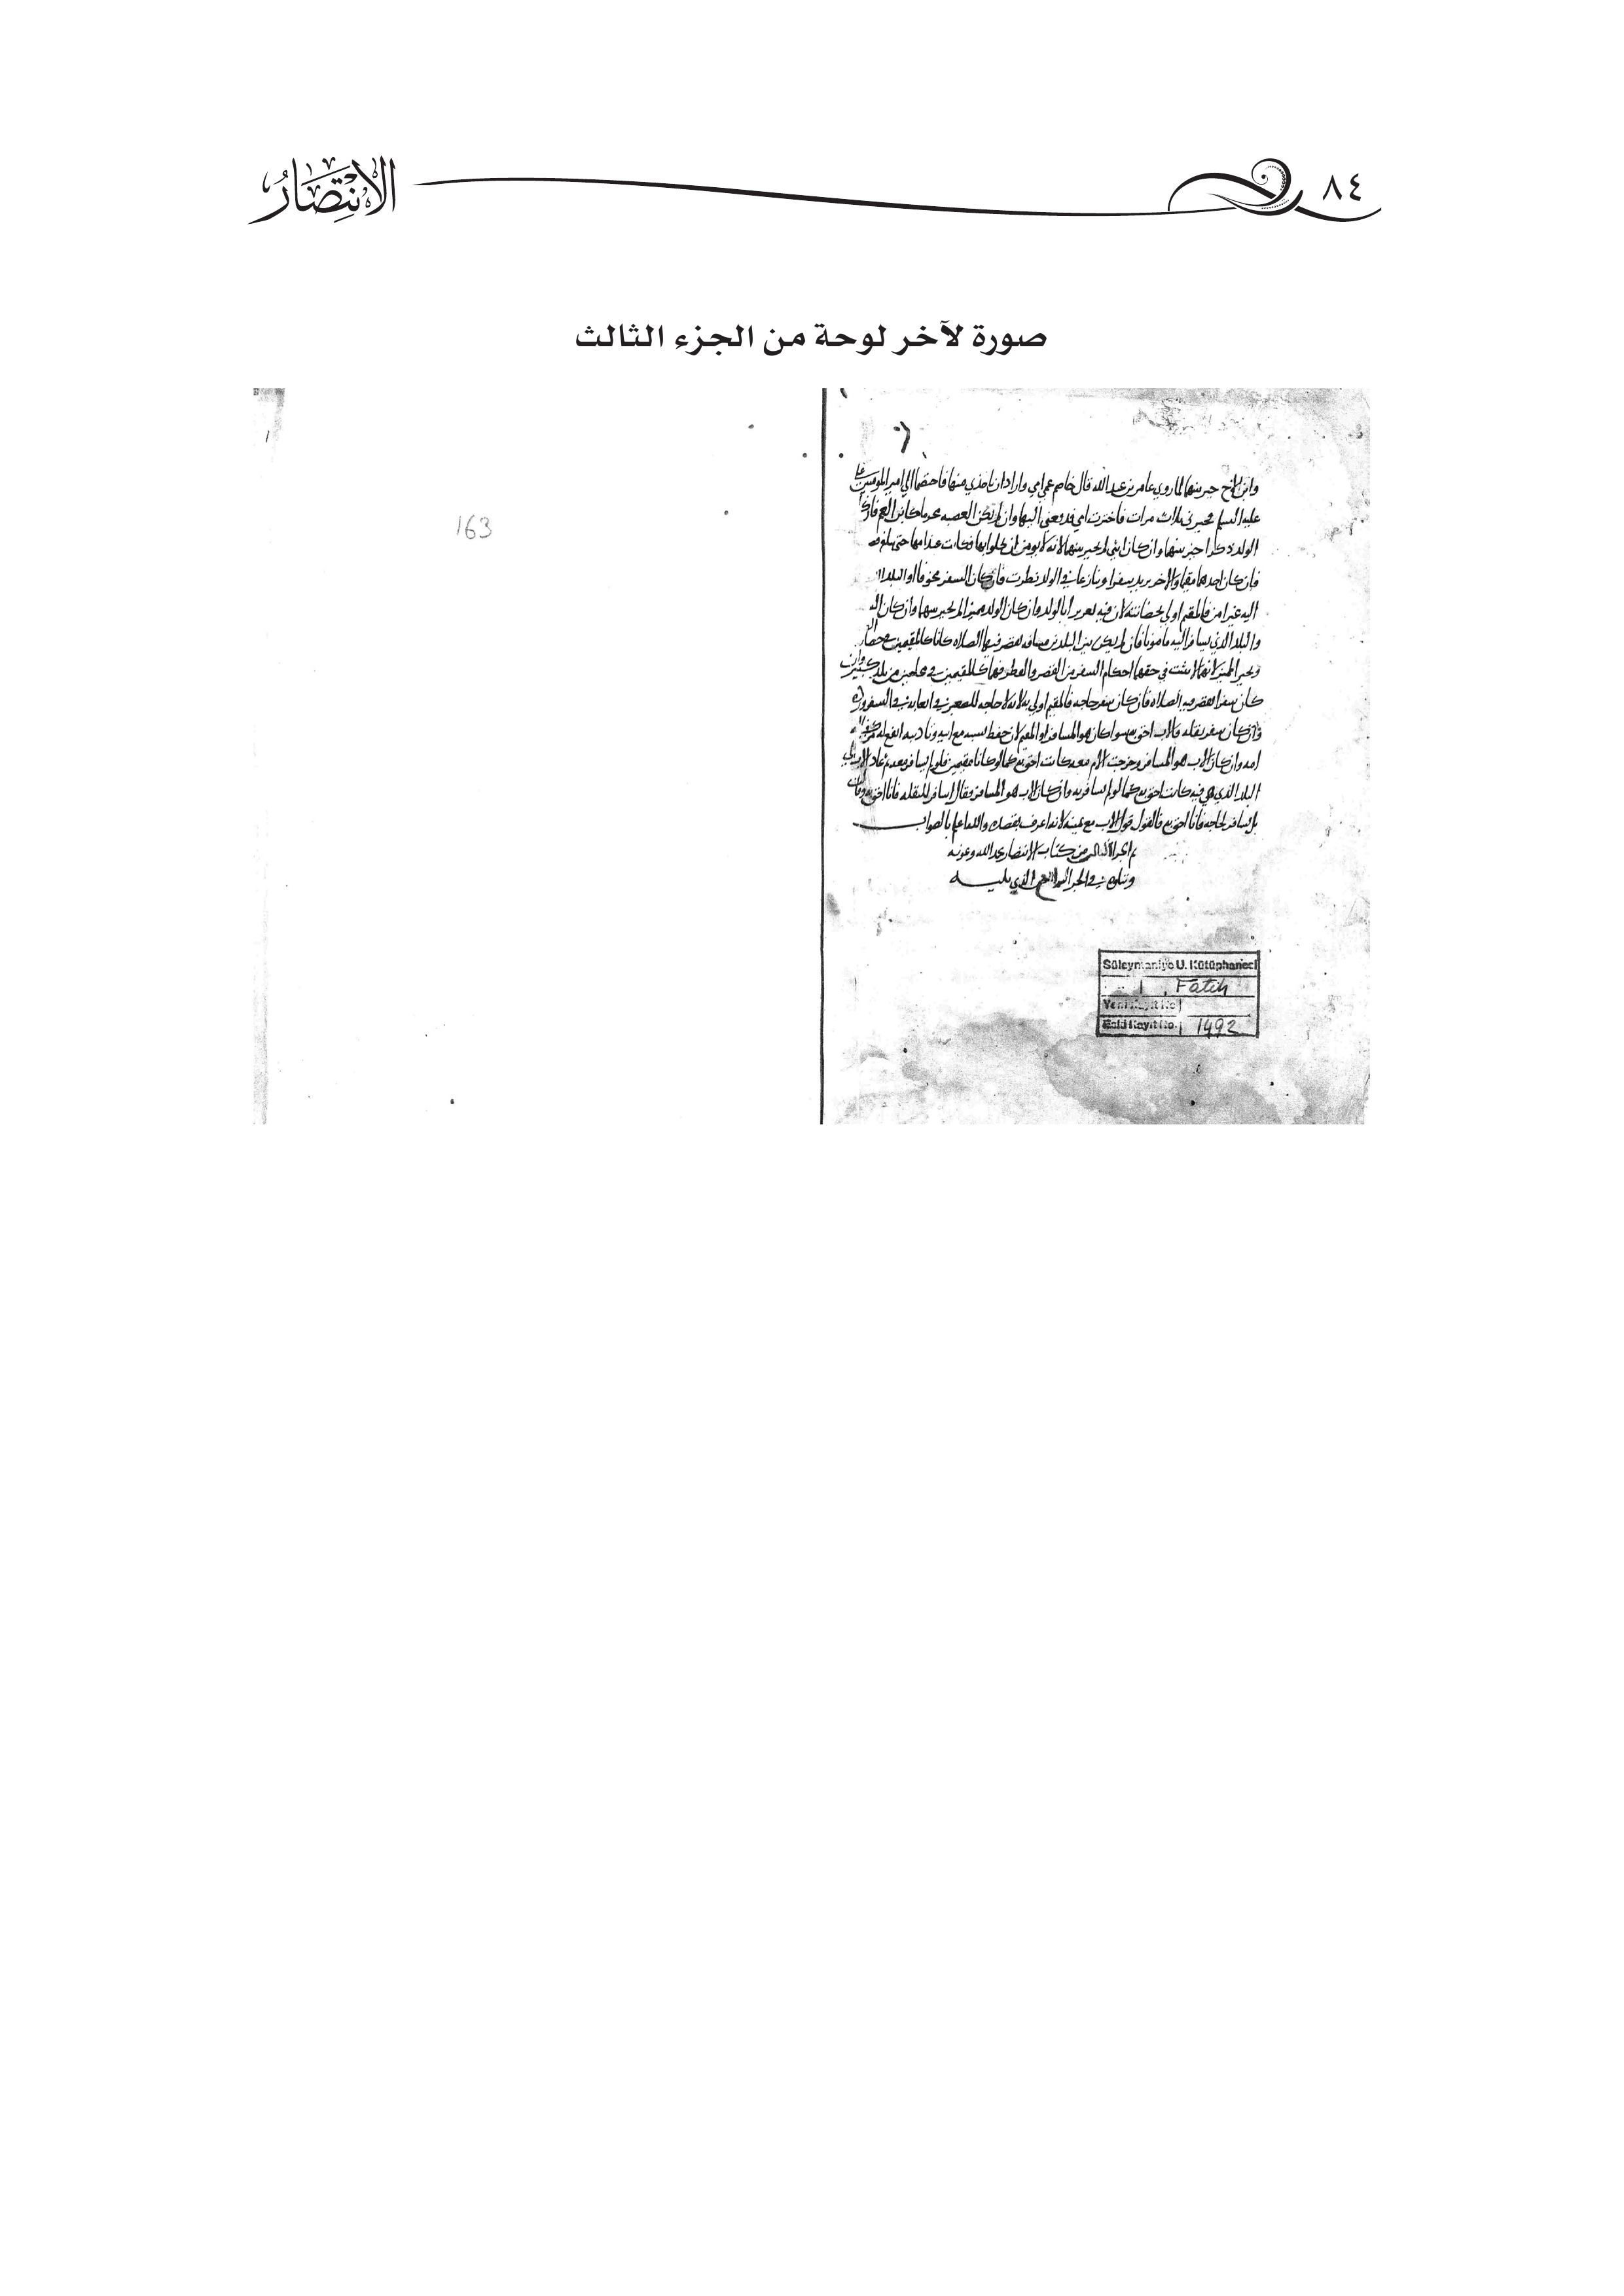 ٨٤
الانتصار
صورة لآخر لوحة من الجزء الثالث
163
وابن الاخ خير بينهما لما روي عامر بن عبد الله قال خاصم عمي امي واراد ان ياخذني منها فاختصما الى امير المومنين علي
عليه السلم فخيرني ثلاث مرات فاخترت امي فدفعني اليها وان لم يكن العصبه محرما كابن العم فان كا
الولد ذكرا خير بينهما وان كان انثى لم يخير بينهما لانه لا يومن ان يخلوا بها فكانت عند امها حتى يبلغ
فان كان احدهما مقيما والاخر يريد سفرا وتنازعا في الولد نظرت فان كان السفر مخوفا او البلد ال
اليه غير امن فالمقيم اولى بحضانته لان فيه تغريرا بالولد وان كان الولد مميزا لم يخير بينهما وان كان
والبلد الذي يسافر اليه مامونا فان لم يكن بين البلدين مسافه تقصر فيها الصلاه كانا كالمقيمين في حضا
ويخير المميز لانهما لا يثبت في حقهما احكام السفر من القصر والفطر فهما كالمقيمين في محلتين من بلد كبير وان
كان سفرا تقصر فيه الصلاه فان كان سفر حاجه فالمقيم اولى به لانه لا حاجه للصغير في السفر
وان كان سفر نقله فالاب احق به سوا كان هو المسافر او المقيم لان حفظ نسبه مع ابيه وتاديبه انفع له من
امه وان كان الاب هو المسافر وخرجت الام معه كانت احق به كما لو كانا مقيمين فلو لم يسافر معه ثم عاد الاب الى
البلد الذي هي فيه كانت احق به كما لو لم يسافر به وان كان الاب هو المسافر فقال اسافر للنقله فانا احق به وقالت
بل يسافر لحاجه فانا احق به فالقول قول الاب مع يمينه لانه اعرف بقصده والله اعلم بالصواب
تم الجزء الثالث من كتاب الانتصار بحمد الله وعونه
ويتلوه في الجزء الرابع الذي يليه
Süleymaniye U. Kütüphanesi
Fatih
Yeni Kayıt No.
Eski Kayıt No. 1492